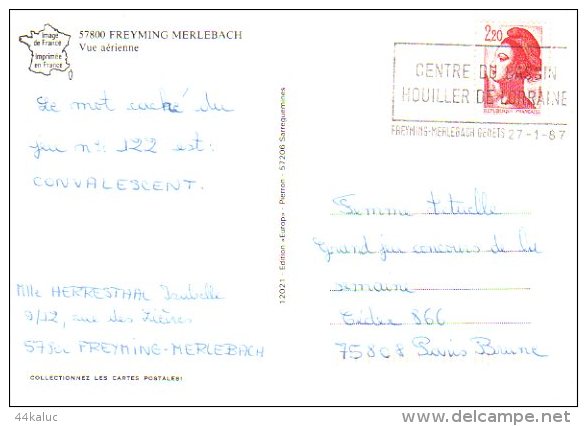 57800 FREYMING MERLEBACH
Vue aérienne
Image
de France
Imprimée
en France
2,20
REPUBLIQUE FRANÇAISE
CENTRE DU BASSIN
HOUILLER DE LORRAINE
FREYMING-MERLEBACH GENETS 27-1-87
Le mot caché du
jeu n° 122 est :
CONVALESCENT.
Mlle HERRESTHAL Isabelle
9/12, rue des
57800 FREYMING-MERLEBACH
COLLECTIONNEZ LES CARTES POSTALES!
12021 - Edition «Europ» - Pierron - 57206 Sarreguemines
Femme Actuelle
Grand jeu concours de la
semaine
Cédex 866
75808 Paris Brune
44kaluc
www.delcampe.net